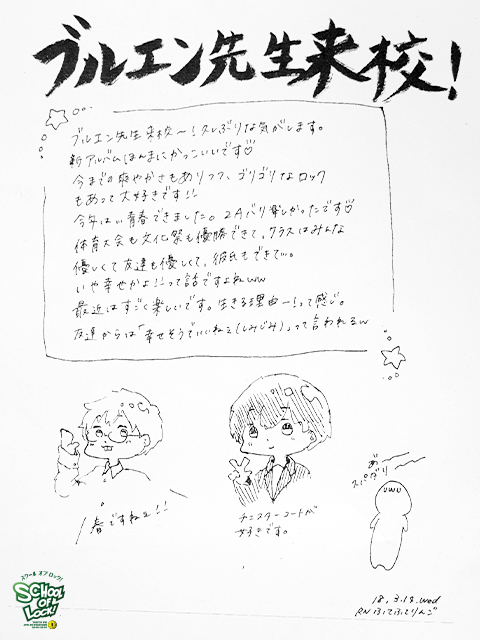 ブルエン先生来校!
ブルエン先生来校〜!久しぶりな気がします。
新アルバムほんまにかっこいいです♡
今までの爽やかさもありつつ、ゴリゴリなロック
もあって大好きです!!
今年はい青春できました。2Aバリ楽しかったです♡
体育大会も文化祭も優勝できて、クラスはみんな
優しくて友達も優しくて、彼氏もできて…。
いや幸せかよ!!って話ですよねww
最近はすごく楽しいです。生きる理由ー!って感じ。
友達からは「幸せそうでいいねぇ(しみじみ)」って言われるw
春ですねぇ!!
チェスターコートが
好きです。
あ
スパダリ
UWU
18.3.14.wed
RN ふてふてりんご
スクール オブ ロック!
SCHOOL
OF
LOCK!